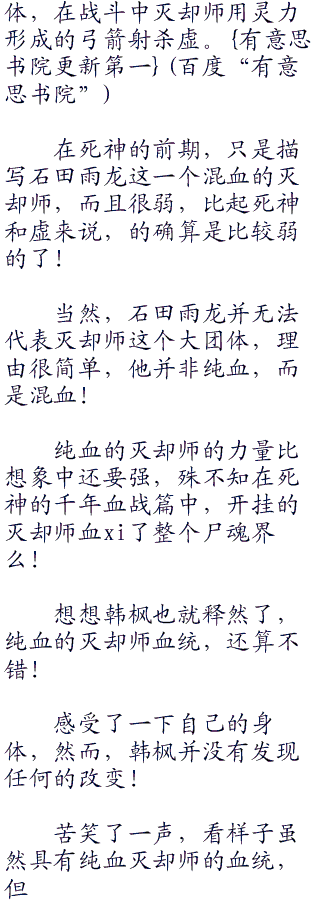 体，在战斗中灭却师用灵力
形成的弓箭射杀虚。{有意思
书院更新第一}(百度“有意
思书院”)
在死神的前期，只是描
写石田雨龙这一个混血的灭
却师，而且很弱，比起死神
和虚来说，的确算是比较弱
的了！
当然，石田雨龙并无法
代表灭却师这个大团体，理
由很简单，他并非纯血，而
是混血！
纯血的灭却师的力量比
想象中还要强，殊不知在死
神的千年血战篇中，开挂的
灭却师血xi了整个尸魂界
么！
想想韩枫也就释然了，
纯血的灭却师血统，还算不
错！
感受了一下自己的身
体，然而，韩枫并没有发现
任何的改变！
苦笑了一声，看样子虽
然具有纯血灭却师的血统，
但